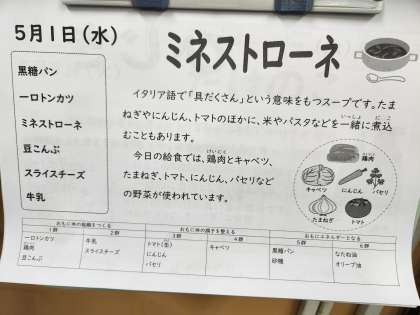 5月1日(水)
ミネストローネ
黒糖パン
一口トンカツ
ミネストローネ
豆こんぶ
スライスチーズ
牛乳
イタリア語で「具だくさん」という意味をもつスープです。たま
ねぎやにんじん、トマトのほかに、米やパスタなどを一緒に煮込
いっしょ にこ
むこともあります。
けいにく
今日の給食では、鶏肉とキャベツ、
たまねぎ、トマト、にんじん、パセリなど
の野菜が使われています。
鶏肉
キャベツ にんじん パセリ
たまねぎ トマト
おもに体の組織をつくる おもに体の調子を整える おもにエネルギーとなる
1群 2群 3群 4群 5群 6群
一口トンカツ 牛乳 トマト(缶) キャベツ 黒糖パン なたね油
鶏肉 スライスチーズ にんじん 砂糖 オリーブ油
豆こんぶ パセリ